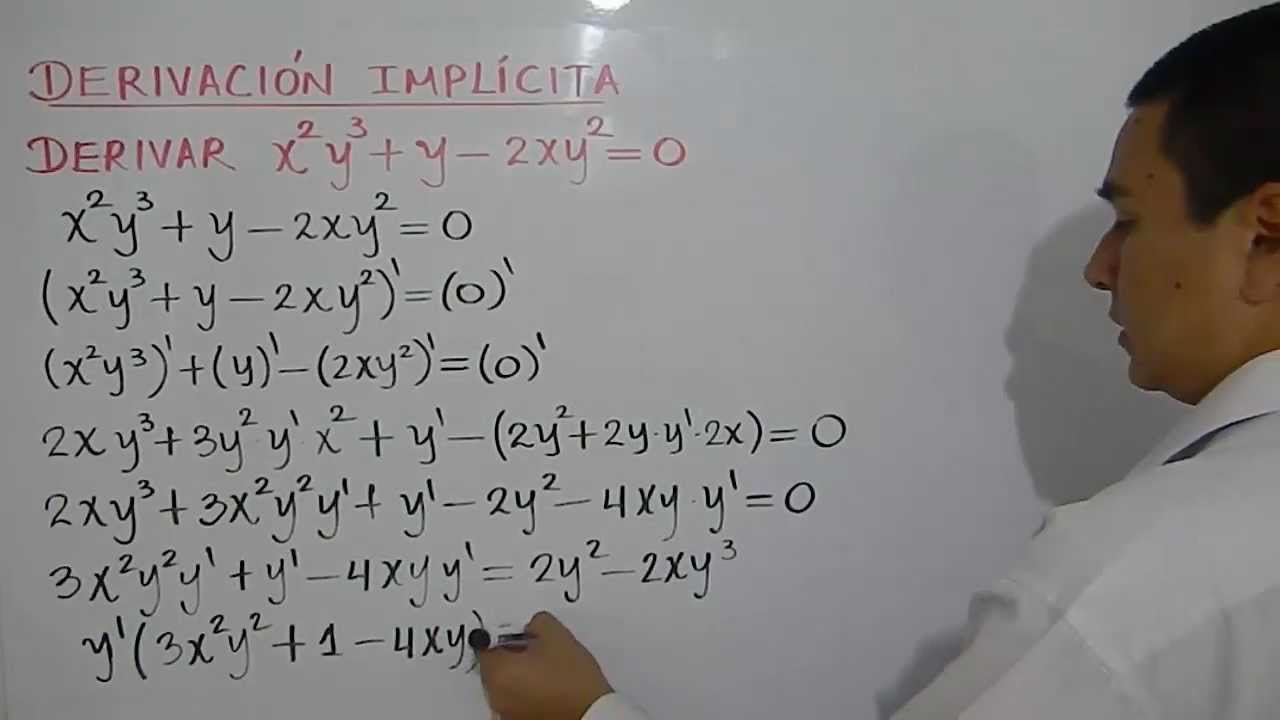 DERIVACIÓN IMPLÍCITA
DERIVAR x²y³ + y − 2xy² = 0
x²y³ + y − 2xy² = 0
(x²y³ + y − 2xy²)' = (0)'
(x²y³)' + (y)' − (2xy²)' = (0)'
2xy³ + 3y²·y'·x² + y' − (2y² + 2y·y'·2x) = 0
2xy³ + 3x²y²y' + y' − 2y² − 4xy·y' = 0
3x²y²y' + y' − 4xyy' = 2y² − 2xy³
y'(3x²y² + 1 − 4xy) =